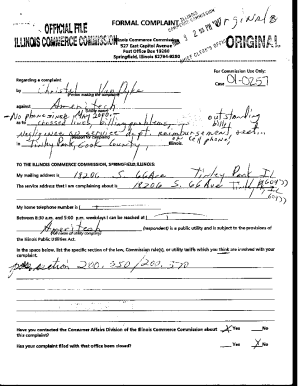 OFFICIAL FILE
ILLINOIS COMMERCE COMMISSION
FORMAL COMPLAINT
Original
Illinois Commerce Commission
527 East Capitol Avenue
Post Office Box 19280
Springfield, Illinois 62794-9280
ORIGINAL
For Commission Use Only:
Case 01-0257
Regarding a complaint
by Christel Van Dyke
against Ameritech
No phone since May 2000. outstanding
as to crossed lines, billing problems, bills
reimbursement,
in Tinley Park, Cook County, cell phone
TO THE ILLINOIS COMMERCE COMMISSION, SPRINGFIELD, ILLINOIS:
My mailing address is 18206 S. 66 Ave Tinley Park Il
The service address that I am complaining about is 18206 S. 66 Ave
My home telephone is
Between 8:30 a.m. and 5:00 p.m. weekdays I can be reached at
Ameritech (respondent) is a public utility and is subject to the provisions of
the Illinois Public Utilities Act.
In the space below, list the specific section of the law, Commission rule(s), or utility tariffs which you think are involved with your
complaint.
section 200.550/200.570
Have you contacted the Consumer Affairs Division of the Illinois Commerce Commission about X Yes No
this complaint?
Has your complaint filed with that office been closed? Yes X No